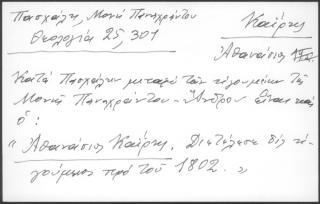 Πασχάλη, Μονή Παναχράντου
Θεολογία 25, 301
Καΐρης
Ἀθανάσιος
Κατά Πασχάλην μεταξύ τῶν ἡγουμένων τῆς
Μονῆς Παναχράντου - Ἄνδρου εἶναι καί
ὁ:
"Ἀθανάσιος Καΐρης. Διετέλεσε δίς ἡ-
γούμενος πρό τοῦ 1802."